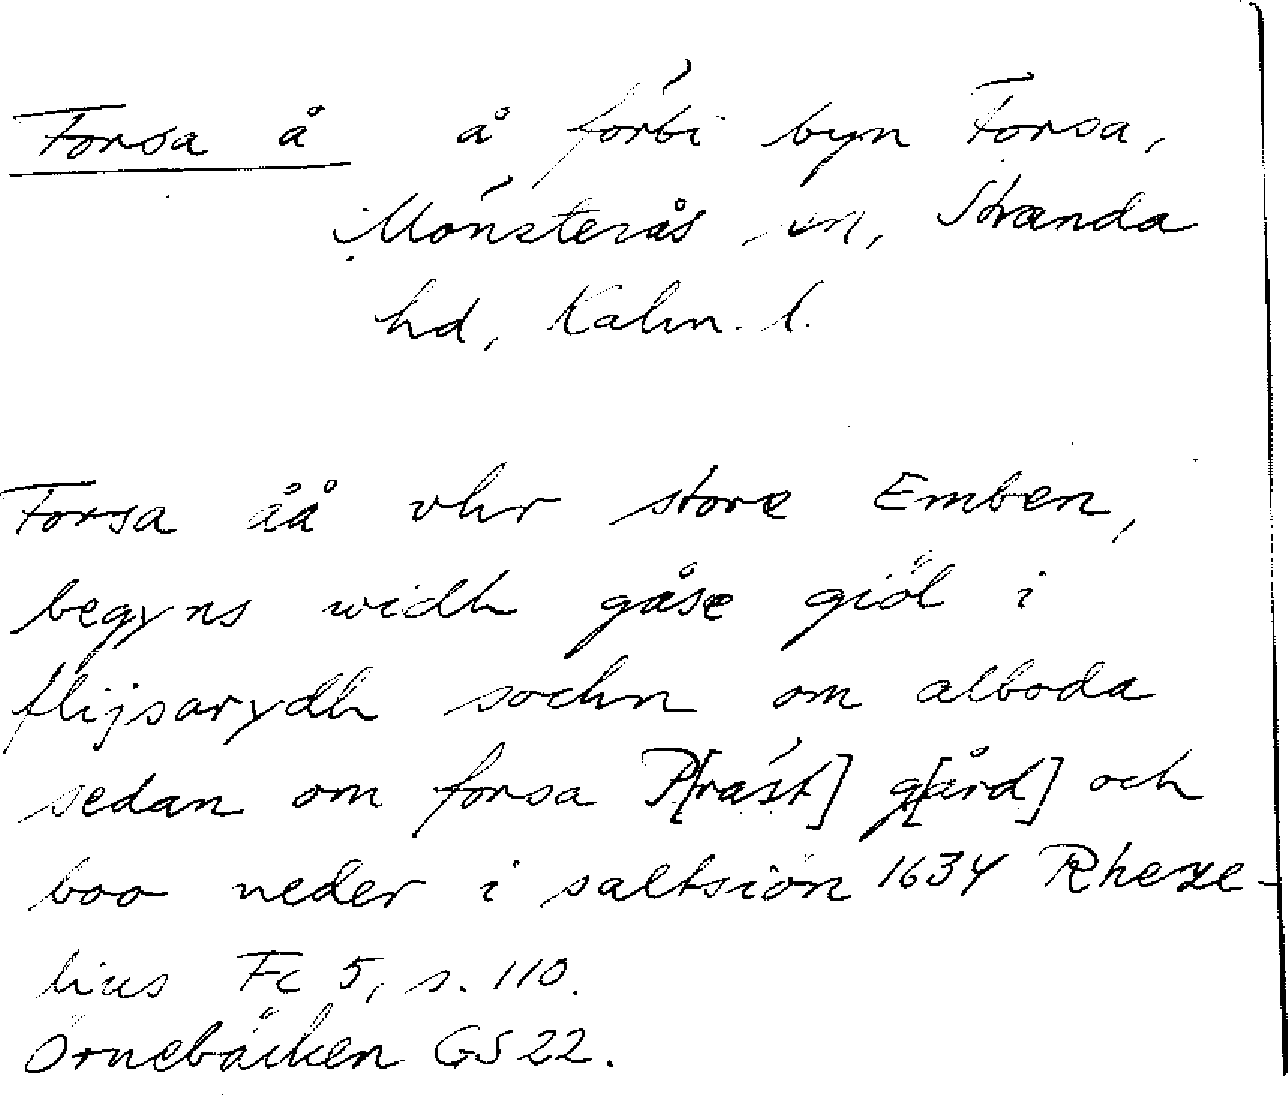 Forsa å å förbi byn Forsa,
Mönsterås sn, Stranda
hd, Kalm. l.
Forsa åå vhr store Emben,
begyns widh gåse giöl i
flijsarydh sochn om alboda
sedan om forsa P[räst] g[ård] och
boo neder i saltsiön 1634 Rheze-
lius Fc 5, s. 110.
Örnebäcken GS 22.